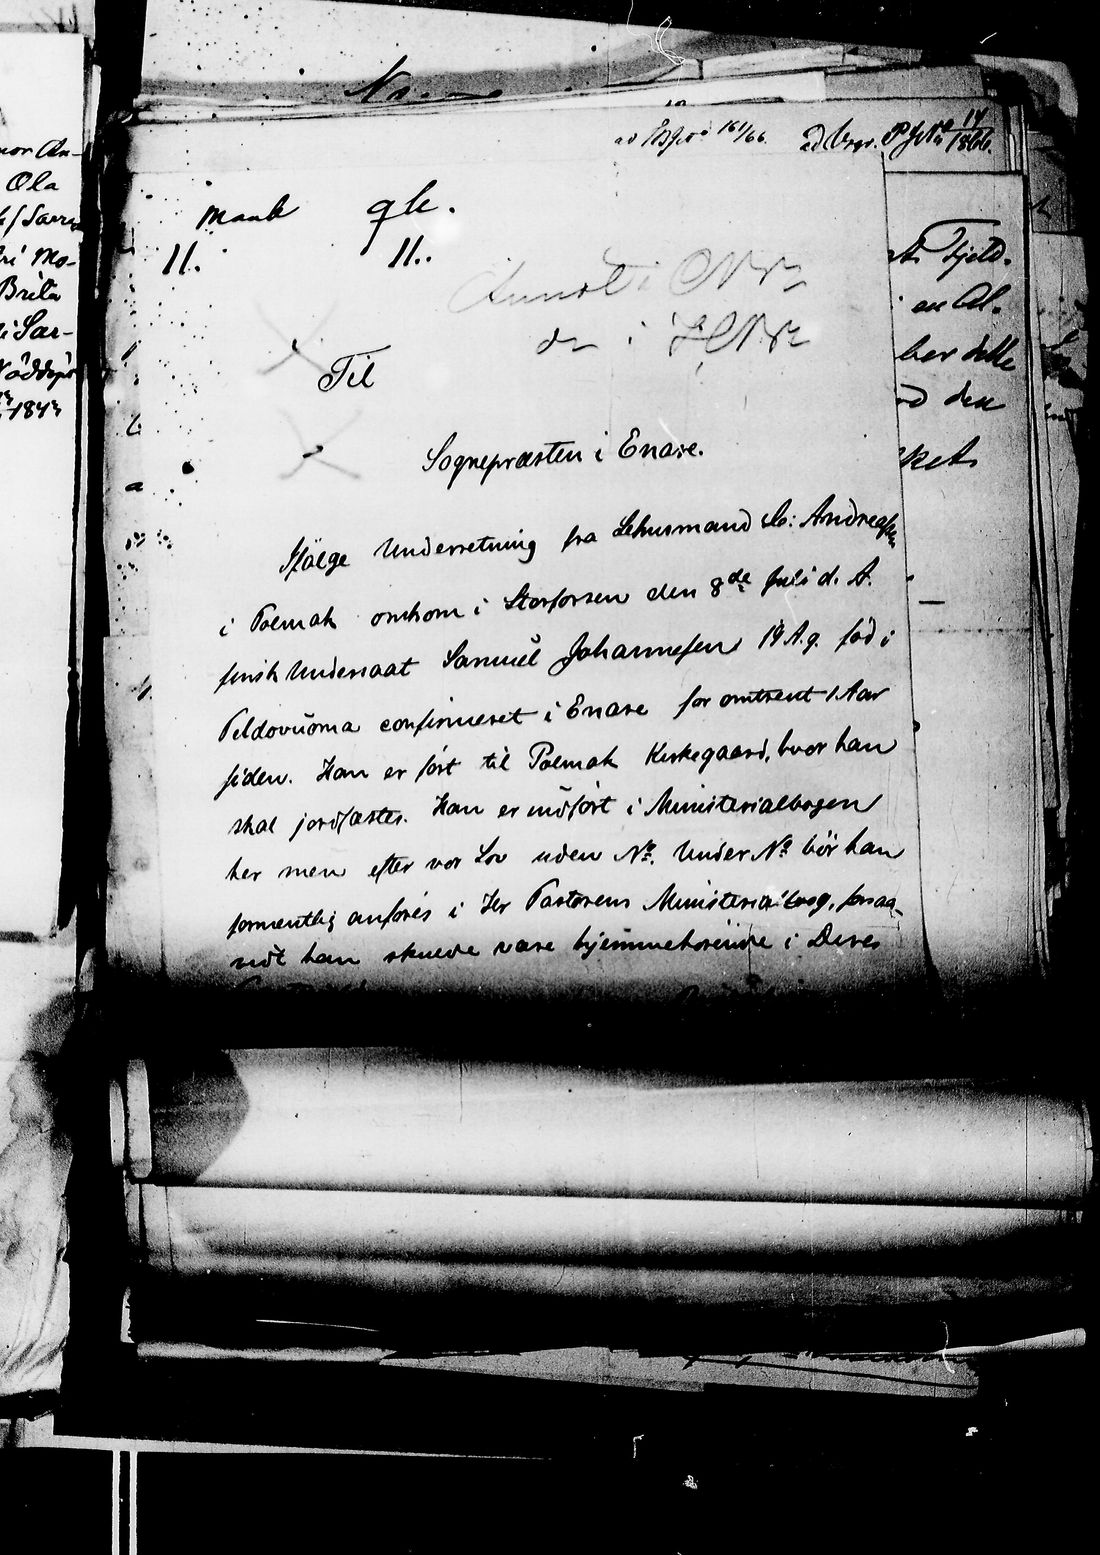 nor An-
Ola
Brita
i Sar-
1843
161/66. ad 14/1866.
mank qk.
11. 11.
Til
Sognepræsten i Enare.
Ifölge Underretning fra Lehnsmand Andreassen
i Polmak omkom i Storforsen den 8de Juli d. A.
finsk Undersaat Samuel Johannesen 19 A. g. föd i
Peldovuoma confirmeret i Enare for omtrent 1 Aar
siden. Han er fört til Polmak Kirkegaard, hvor han
skal jordfæstes. Han er indfört i Ministerialbogen
her men efter vor Lov uden No. Under No bör han
formentlig anföres i Hr Pastorens Ministerialbog, forsaa-
vidt han skulde være hjemmehörende i Deres
Fjeld-
en Al-
ber dette
den